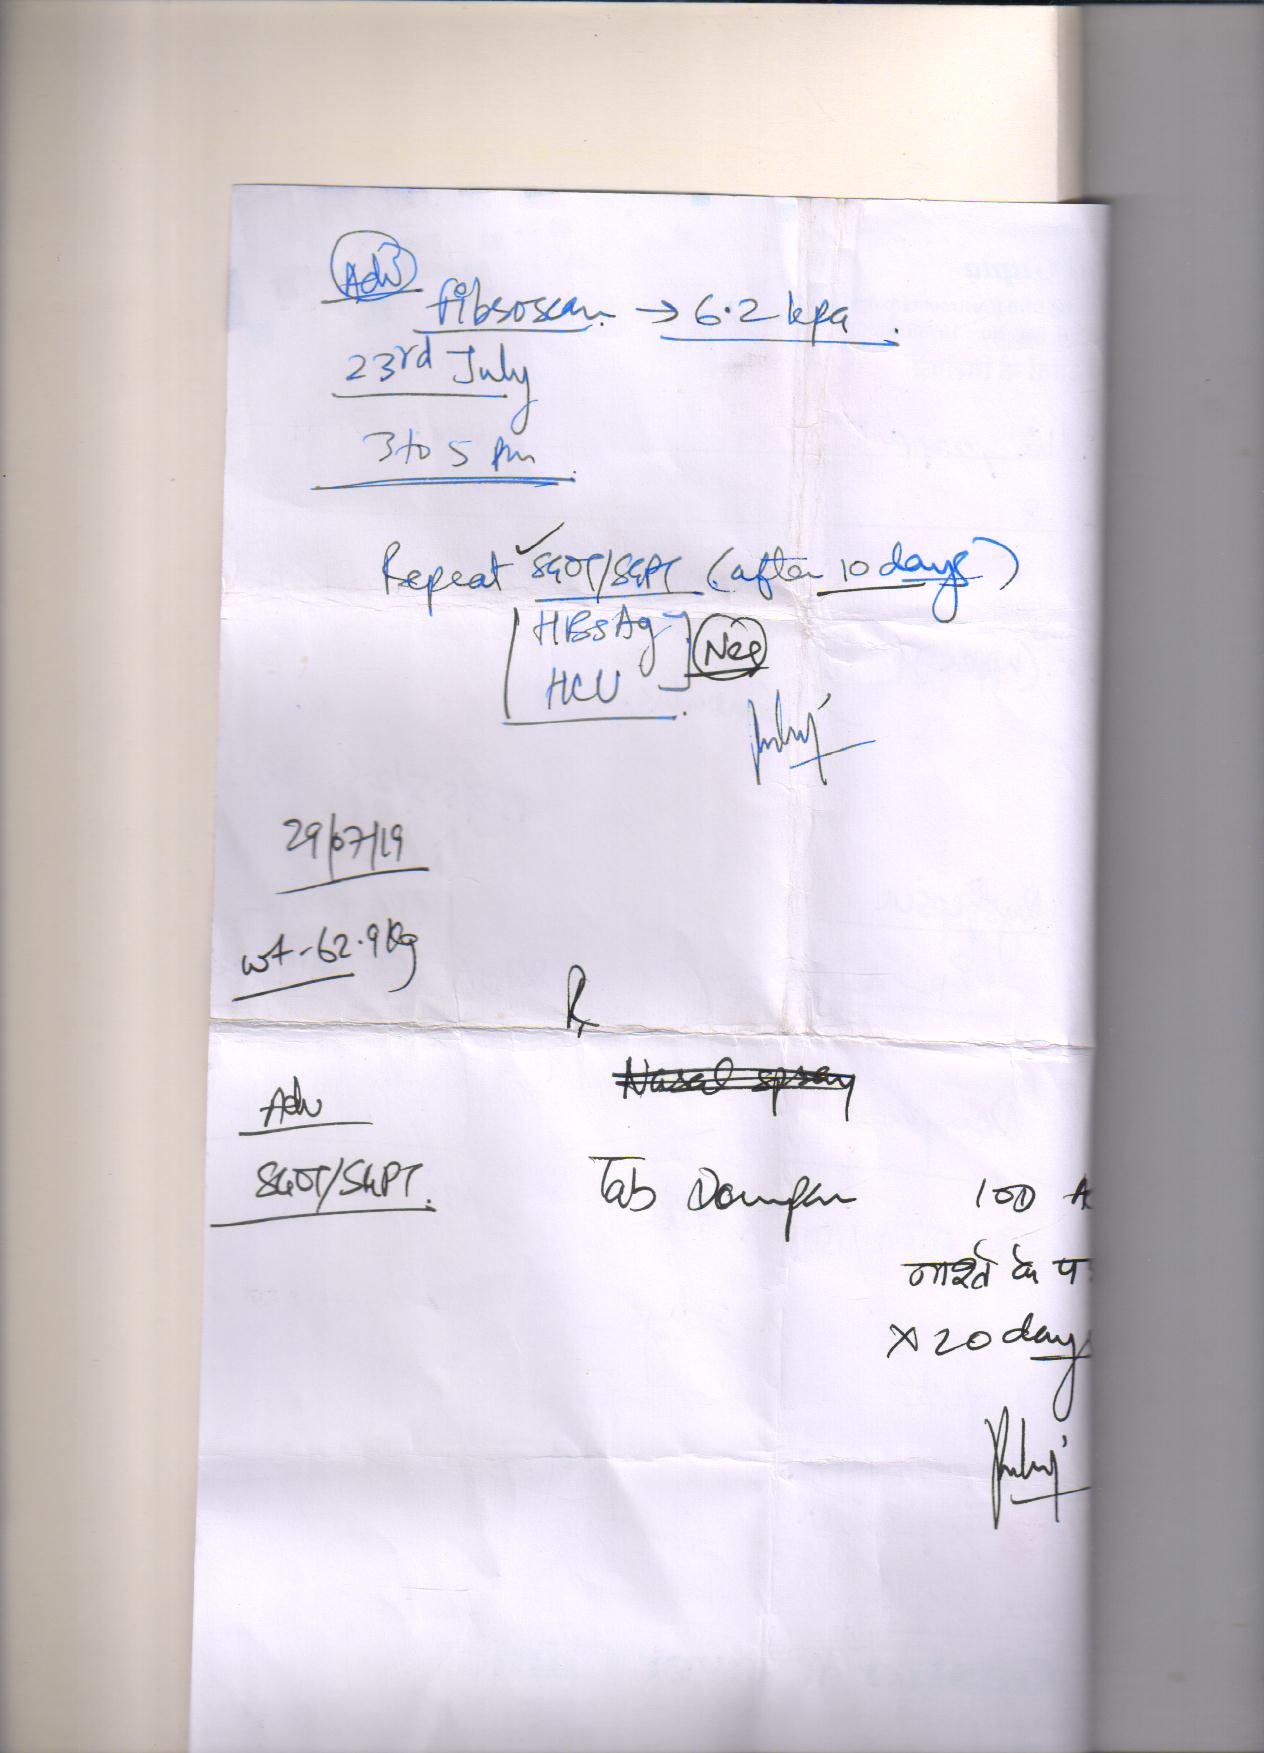 Adv
Fibroscan → 6.2 kpa
23rd July
3 to 5 pm
Repeat ✓ SGOT/SGPT (after 10 days)
HBsAg
HCV
Neg
29/07/19
wt - 62.9 Kg
Rx
Nasal spray
Adv
SGOT/SGPT.
Tab
100
नाश्ते के
x 20 days